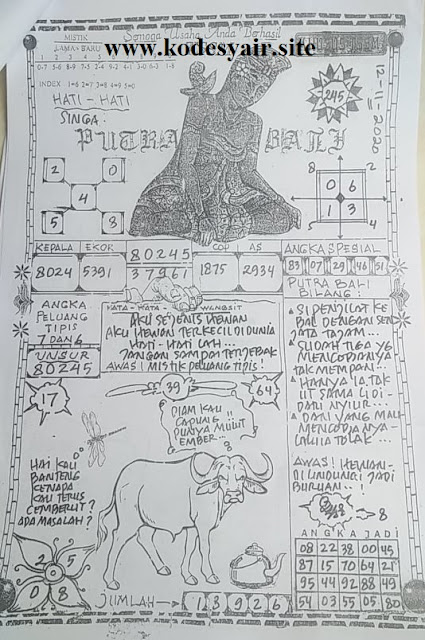 MISTIK
Semoga Usaha Anda Berhasil
www.kodesyair.site
LAMA - BARU
0-7 5-6 8-9 7-5 2-4 9-2 6-1 4-1 3-0 6-3 1-8
INDEX 1=6 2=7 3=8 4=9 5=0
HATI - HATI
SINGA:
PUTRA BALI
245
12-11-2020
2 0
4
5 8
8 2
0 6
1 3
4
KEPALA EKOR 80245 COP AS ANGKA SPESIAL
8024 5391 37961 1875 2934 83 07 29 46 51
PUTRA BALI
BILANG:
ANGKA
PELUANG
TIPIS
7 DAN 6
UNSUR
80245
KATA - KATA WENGSIT
AKU SEJENIS HEWAN
AKU HEWAN TERKECIL DI DUNIA
HATI - HATI LAH...
JANGAN SAMPAI TERJEBAK
AWAS! MISTIK PELUANG TIPIS!
SI PENJILAT KE
BAL DENGAN SEN
JATA TAJAM...
SUDAH TIGA YG
MENCOBANYA
TAK MEMPAN...
HANYA IA TAK
UT SAMA LIDI
DARI NYIUR...
DAN YANG MAU
MENCOBANYA
TOLAK...
17
39
64
DIAM KAU
CAPUNG
PUNYA MULUT
EMBER...
HAI KAU
BANTENG
KENAPA
KAU TERUS
CEMBERUT?
ADA MASALAH?
AWAS! HEWAN
DILINDUNGI JADI
BURUAN..!
8
2 5
0 8
ANGKA JADI
08 22 38 00 45
87 15 70 64 21
95 44 92 88 49
54 03 55 05 80
JUMLAH 1 3 9 2 6